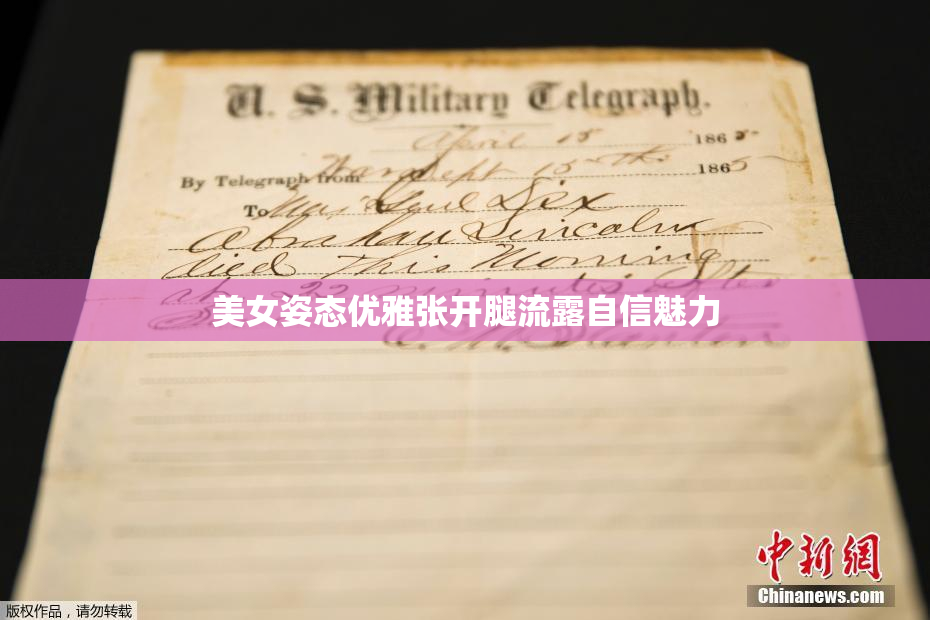 U. S. Military Telegraph.
April 15 1865
By Telegraph from War Dept 15th 1865
To Maj Genl Dix
Abraham Lincoln
died this Morning
at 22 minutes after
美女姿态优雅张开腿流露自信魅力
E. M. Stanton
中新网
Chinanews.com
版权作品，请勿转载